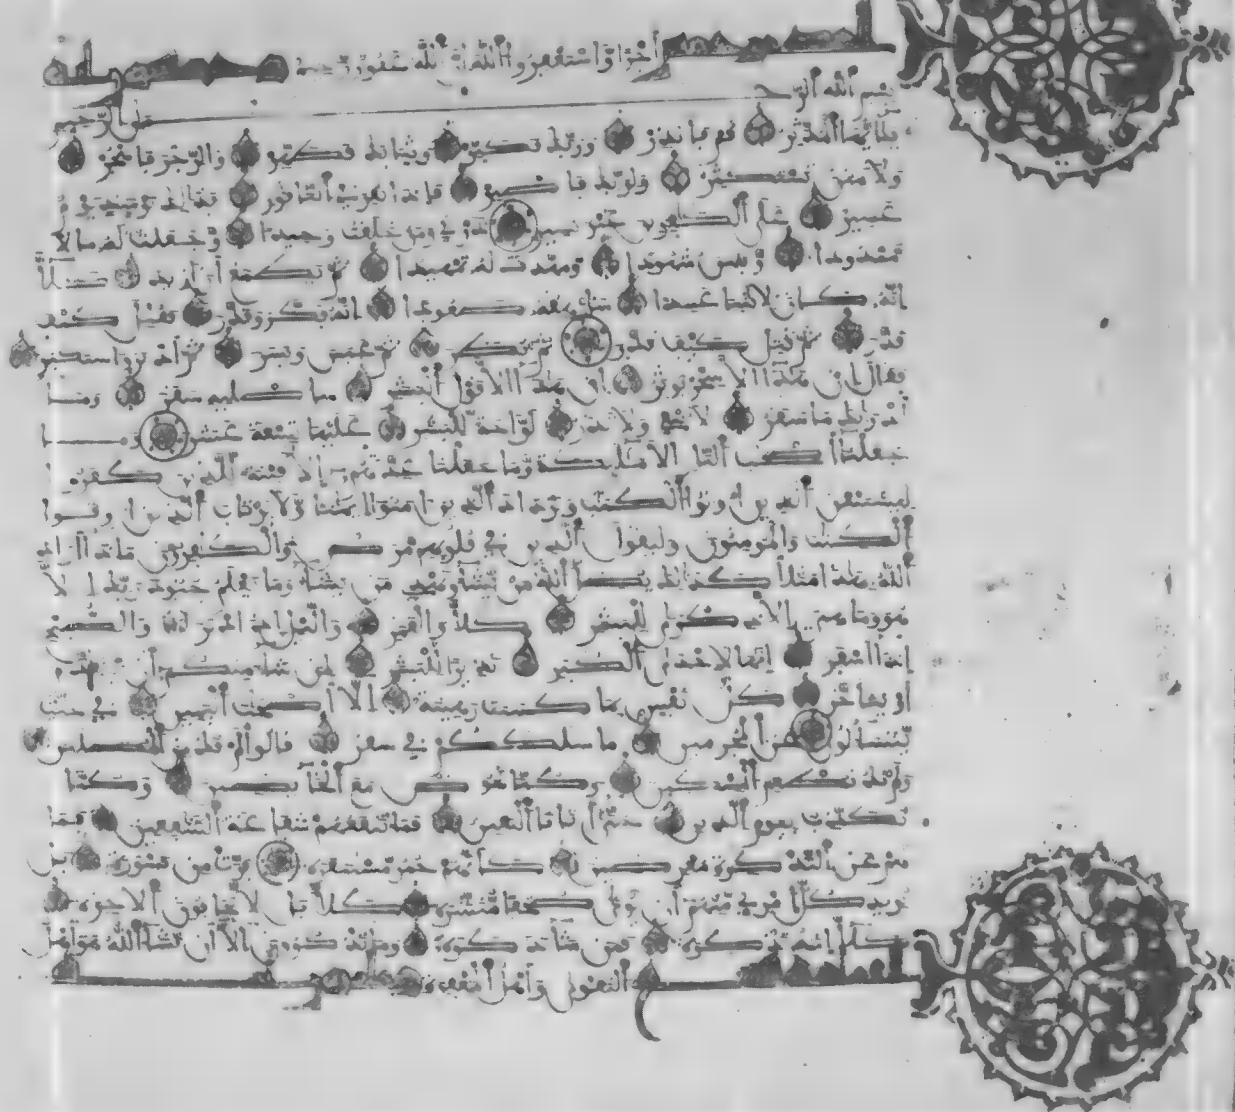 أجرا واستغفروا الله إن الله غفور رحيم
بسم الله الرحـ
ـمن الرحيم
يأيها المدثر قم فأنذر وربك فكبر وثيابك فطهر والرجز فاهجر
ولا تمنن تستكثر ولربك فاصبر فإذا نقر في الناقور فذلك يومئذ يوم
عسير على الكفرين غير يسير ذرني ومن خلقت وحيدا وجعلت له مالا
ممدودا وبنين شهودا ومهدت له تمهيدا ثم يطمع أن أزيد كلا
إنه كان لآيتنا عنيدا سأرهقه صعودا إنه فكر وقدر فقتل كيف
قدر ثم قتل كيف قدر ثم نظر ثم عبس وبسر ثم أدبر واستكبر
فقال إن هذا إلا سحر يؤثر إن هذا إلا قول البشر سأصليه سقر وما
أدريك ما سقر لا تبقي ولا تذر لواحة للبشر عليها تسعة عشر وما
جعلنا أصحب النار إلا ملئكة وما جعلنا عدتهم إلا فتنة للذين كفروا
ليستيقن الذين أوتوا الكتب ويزداد الذين ءامنوا إيمنا ولا يرتاب الذين أوتوا
الكتب والمؤمنون وليقول الذين في قلوبهم مرض والكفرون ماذا أراد
الله بهذا مثلا كذلك يضل الله من يشاء ويهدي من يشاء وما يعلم جنود ربك إلا
هو وما هي إلا ذكرى للبشر كلا والقمر واليل إذ أدبر والصبح
إذا أسفر إنها لإحدى الكبر نذيرا للبشر لمن شاء منكم أن يتقدم
أو يتأخر كل نفس بما كسبت رهينة إلا أصحب اليمين في جنت
يتساءلون عن المجرمين ما سلككم في سقر قالوا لم نك من المصلين
ولم نك نطعم المسكين وكنا نخوض مع الخائضين وكنا
نكذب بيوم الدين حتى أتينا اليقين فما تنفعهم شفعة الشفعين فما
لهم عن التذكرة معرضين كأنهم حمر مستنفرة فرت من قسورة بل
يريد كل امرئ منهم أن يؤتى صحفا منشرة كلا بل لا يخافون الآخرة
كلا إنه تذكرة فمن شاء ذكره وما يذكرون إلا أن يشاء الله هو أهل
التقوى وأهل المغفرة